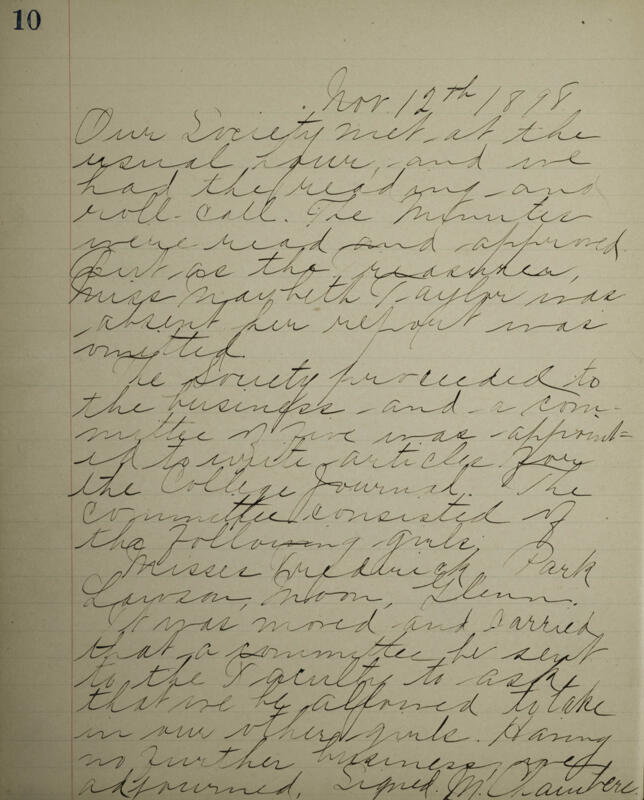 10
Nov. 12th 1898
Our Society met at the
usual hour, and we
had the reading and
roll-call. The Minutes
were read and approved
but as the Treasurer,
Miss Maybeth Taylor was
absent her report was
omitted.
The Society proceeded to
the business and a com-
mittee of five was appoint=
ed to write articles for
the College Journal. The
committee consisted of
the following girls,
Misses Frederick, Park
Lawson, Moon, Glenn.
It was moved and carried
that a committee be sent
to the Faculty to ask
that we be allowed to take
in our other girls. Having
no further business, we
adjourned. Signed. M. Chambers.